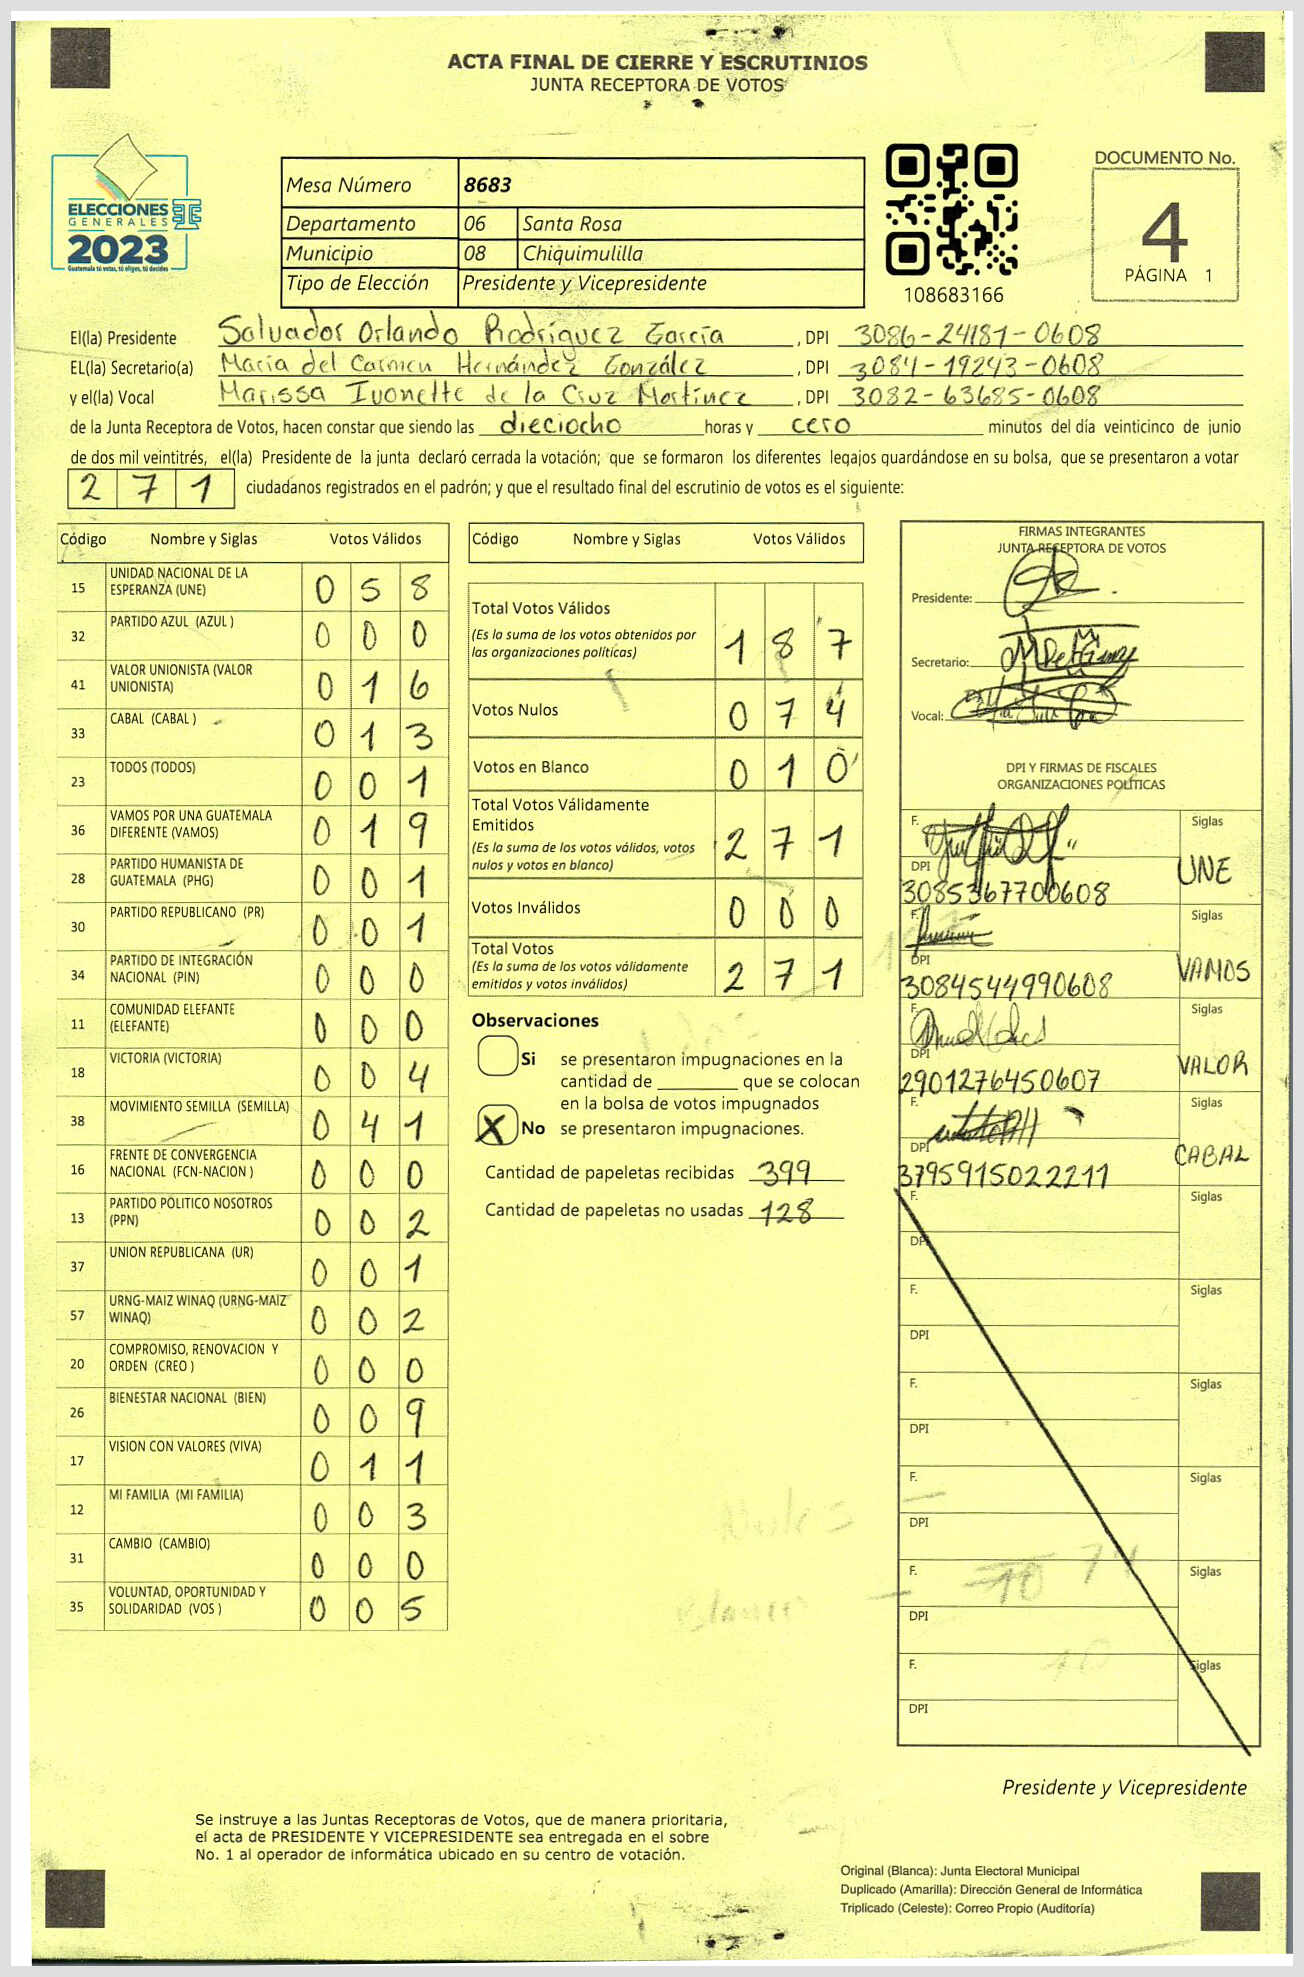 ACTA FINAL DE CIERRE Y ESCRUTINIOS
JUNTA RECEPTORA DE VOTOS
ELECCIONES
GENERALES
2023
Guatemala tú votas, tú eliges, tú decides
Mesa Número 8683
Departamento 06 Santa Rosa
Municipio 08 Chiquimulilla
Tipo de Elección Presidente y Vicepresidente
108683166
DOCUMENTO No.
4
PÁGINA 1
El(la) Presidente Salvador Orlando Rodríguez García , DPI 3086-24187-0608
EL(la) Secretario(a) María del Carmen Hernández González , DPI 3084-19243-0608
y el(la) Vocal Marissa Ivonette de la Cruz Martínez , DPI 3082-63685-0608
de la Junta Receptora de Votos, hacen constar que siendo las dieciocho horas y cero minutos del día veinticinco de junio
de dos mil veintitrés, el(la) Presidente de la junta declaró cerrada la votación; que se formaron los diferentes legajos guardándose en su bolsa, que se presentaron a votar
2 7 1 ciudadanos registrados en el padrón; y que el resultado final del escrutinio de votos es el siguiente:
Código Nombre y Siglas Votos Válidos
15 UNIDAD NACIONAL DE LA
ESPERANZA (UNE) 0 5 8
32 PARTIDO AZUL (AZUL ) 0 0 0
41 VALOR UNIONISTA (VALOR
UNIONISTA) 0 1 6
33 CABAL (CABAL ) 0 1 3
23 TODOS (TODOS) 0 0 1
36 VAMOS POR UNA GUATEMALA
DIFERENTE (VAMOS) 0 1 9
28 PARTIDO HUMANISTA DE
GUATEMALA (PHG) 0 0 1
30 PARTIDO REPUBLICANO (PR) 0 0 1
34 PARTIDO DE INTEGRACIÓN
NACIONAL (PIN) 0 0 0
11 COMUNIDAD ELEFANTE
(ELEFANTE) 0 0 0
18 VICTORIA (VICTORIA) 0 0 4
38 MOVIMIENTO SEMILLA (SEMILLA) 0 4 1
16 FRENTE DE CONVERGENCIA
NACIONAL (FCN-NACION ) 0 0 0
13 PARTIDO POLITICO NOSOTROS
(PPN) 0 0 2
37 UNION REPUBLICANA (UR) 0 0 1
57 URNG-MAIZ WINAQ (URNG-MAIZ
WINAQ) 0 0 2
20 COMPROMISO, RENOVACION Y
ORDEN (CREO ) 0 0 0
26 BIENESTAR NACIONAL (BIEN) 0 0 9
17 VISION CON VALORES (VIVA) 0 1 1
12 MI FAMILIA (MI FAMILIA) 0 0 3
31 CAMBIO (CAMBIO) 0 0 0
35 VOLUNTAD, OPORTUNIDAD Y
SOLIDARIDAD (VOS ) 0 0 5
Código Nombre y Siglas Votos Válidos
Total Votos Válidos
(Es la suma de los votos obtenidos por
las organizaciones políticas) 1 8 7
Votos Nulos 0 7 4
Votos en Blanco 0 1 0
Total Votos Válidamente
Emitidos
(Es la suma de los votos válidos, votos
nulos y votos en blanco) 2 7 1
Votos Inválidos 0 0 0
Total Votos
(Es la suma de los votos válidamente
emitidos y votos inválidos) 2 7 1
Observaciones
Si se presentaron impugnaciones en la
cantidad de ________ que se colocan
en la bolsa de votos impugnados
X No se presentaron impugnaciones.
Cantidad de papeletas recibidas 399
Cantidad de papeletas no usadas 128
FIRMAS INTEGRANTES
JUNTA RECEPTORA DE VOTOS
Presidente:
Secretario:
Vocal:
DPI Y FIRMAS DE FISCALES
ORGANIZACIONES POLÍTICAS
F. Siglas
DPI UNE
3085367700608
F. Siglas
DPI VAMOS
3084544990608
F. Siglas
DPI VALOR
2901276450607
F. Siglas
DPI CABAL
3795915022211
F. Siglas
DPI
F. Siglas
DPI
F. Siglas
DPI
F. Siglas
DPI
F. Siglas
DPI
F. Siglas
DPI
Presidente y Vicepresidente
Se instruye a las Juntas Receptoras de Votos, que de manera prioritaria,
el acta de PRESIDENTE Y VICEPRESIDENTE sea entregada en el sobre
No. 1 al operador de informática ubicado en su centro de votación.
Original (Blanca): Junta Electoral Municipal
Duplicado (Amarilla): Dirección General de Informática
Triplicado (Celeste): Correo Propio (Auditoría)